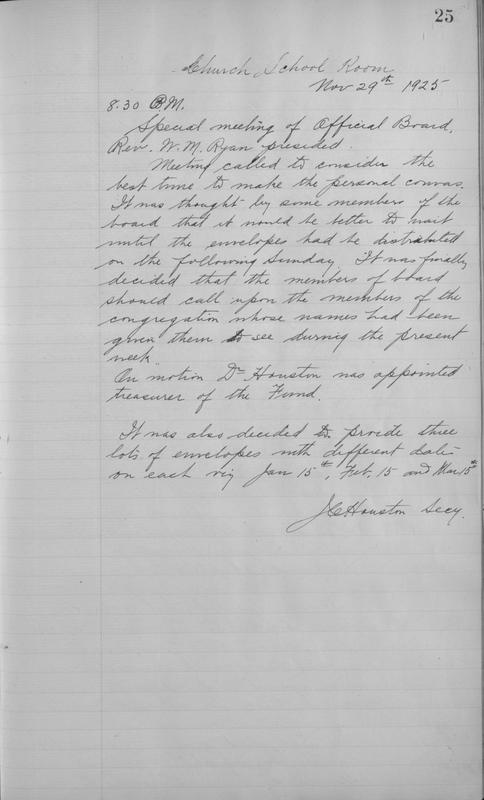 25
Church School Room
Nov 29th 1925
8.30 P.M.
Special meeting of Official Board,
Rev. W. M. Ryan presided.
Meeting called to consider the
best time to make the personal canvas.
It was thought by some members of the
board that it would be better to wait
until the envelopes had be distributed
on the following Sunday. It was finally
decided that the members of board
should call upon the members of the
congregation whose names had been
given them to see during the present
week.
On motion Dr Houston was appointed
treasurer of the Fund.
It was also decided to provide three
lots of envelopes with different dates
on each viz Jan 15th, Feb. 15 and Mar 15th
J C Houston Secy.